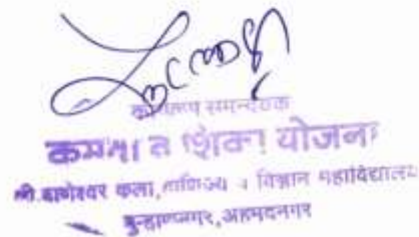 समन्वयक
कमवा व शिका योजना
श्री बाणेश्वर कला, वाणिज्य व विज्ञान महाविद्यालय
बुऱ्हाणनगर, अहमदनगर